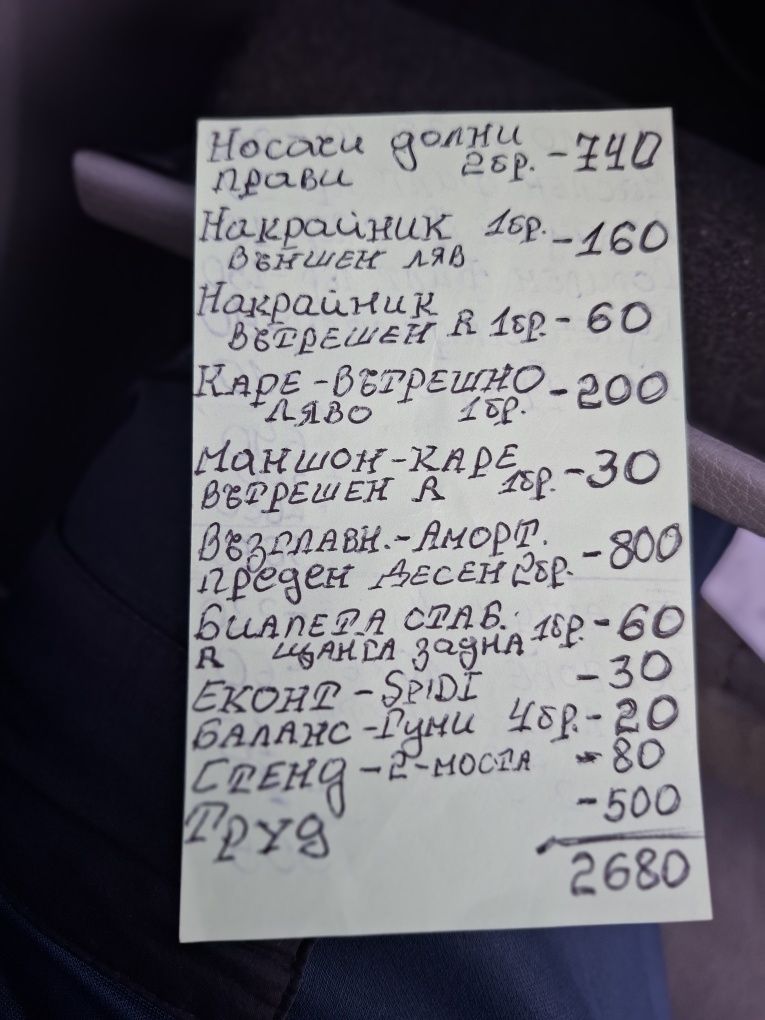 Носачи долни
прави 2бр. - 740
Накрайник 1бр. - 160
ВЪНШЕН ЛЯВ
Накрайник
ВЪТРЕШЕН R 1бр. - 60
КАРЕ - ВЪТРЕШНО - 200
ЛЯВО 1бр.
МАНШОН - КАРЕ
ВЪТРЕШЕН R 1бр. - 30
ВЪЗГЛАВН. - АМОРТ.
преден ДЕСЕН 2бр. - 800
БИАЛЕТА СТАБ. 1бр. - 60
R ЩАНГА задна
ЕКОНТ - SPIDI - 30
БАЛАНС - Гуми 4бр. - 20
СТЕНД - 2 - МОСТА - 80
ТРУД - 500
2680